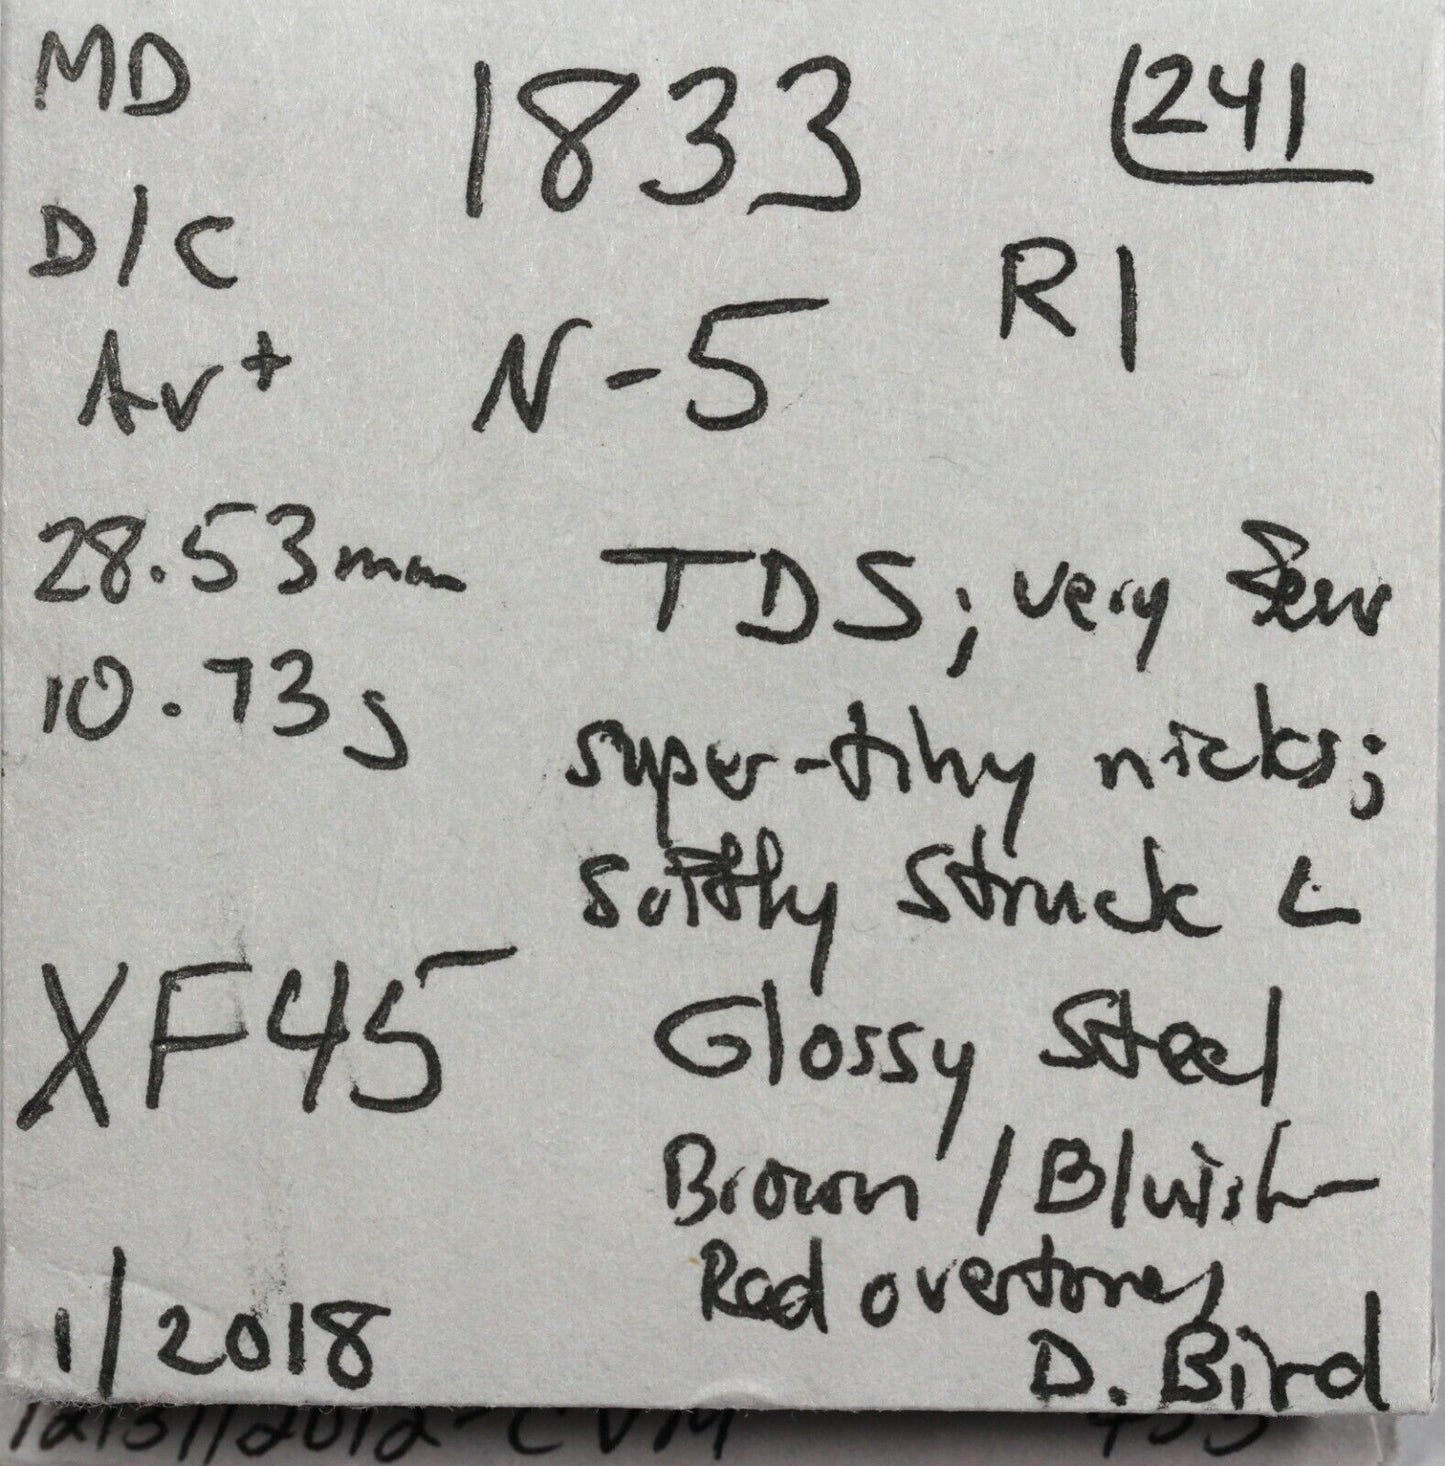 MD 1833 241
D/C R1
Av+ N-5
28.53mm TDS; very few
10.73g super-tiny nicks;
softly struck L
XF45 Glossy Steel
Brown / Bluish-
Red overtones
1/2018 D. Bird
12/31/2012-CVM